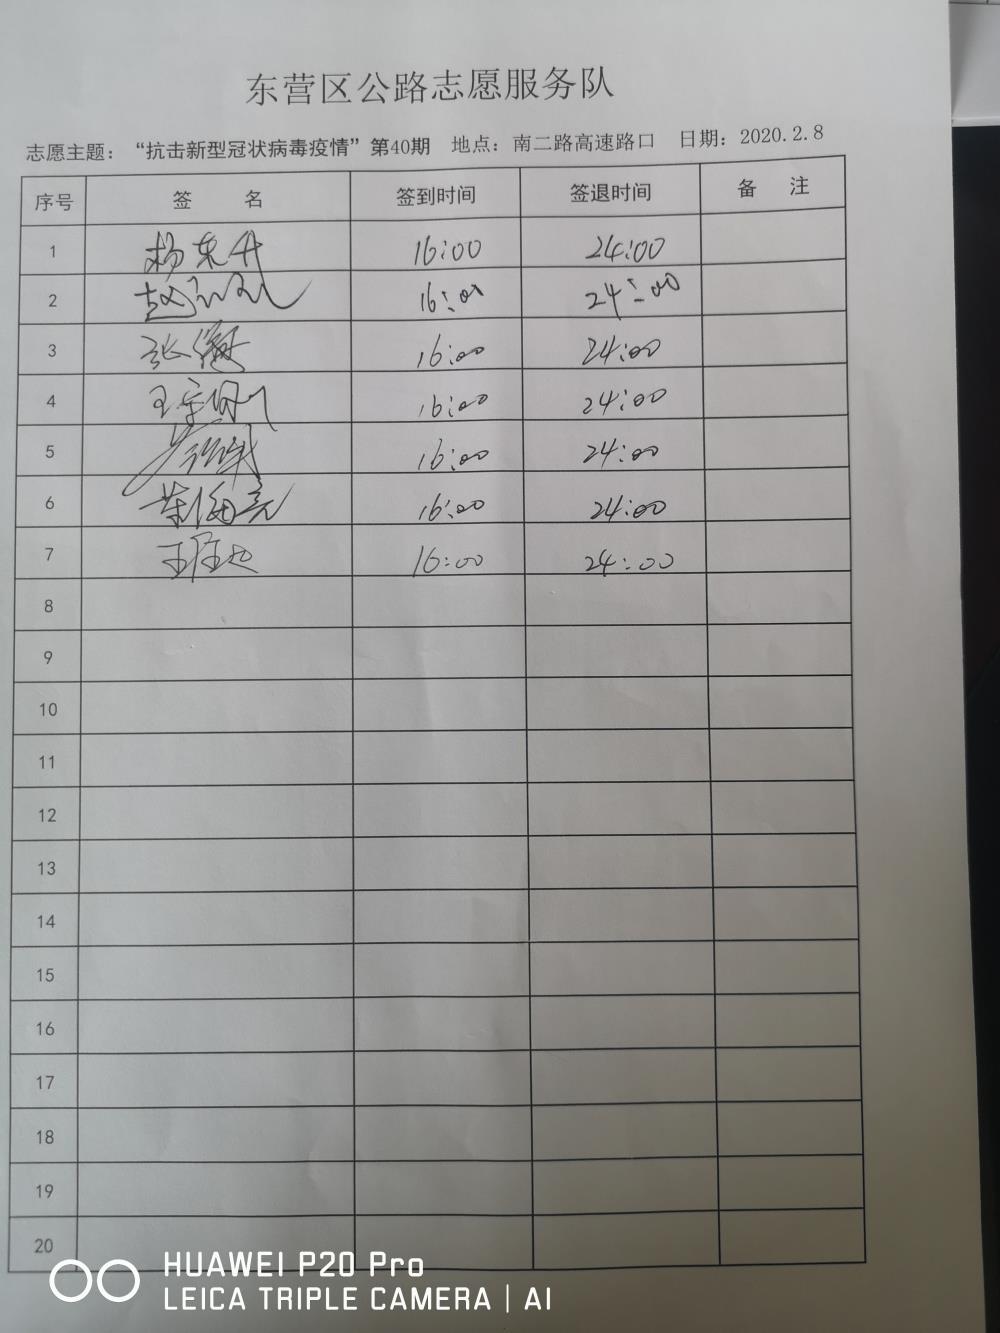 东营区公路志愿服务队
志愿主题：“抗击新型冠状病毒疫情”第40期 地点：南二路高速路口 日期：2020.2.8
序号 签 名 签到时间 签退时间 备 注
1 杨东升 16:00 24:00
2 16:00 24:00
3 张 16:00 24:00
4 王 16:00 24:00
5 16:00 24:00
6 16:00 24:00
7 王 16:00 24:00
8
9
10
11
12
13
14
15
16
17
18
19
20
HUAWEI P20 Pro
LEICA TRIPLE CAMERA | AI